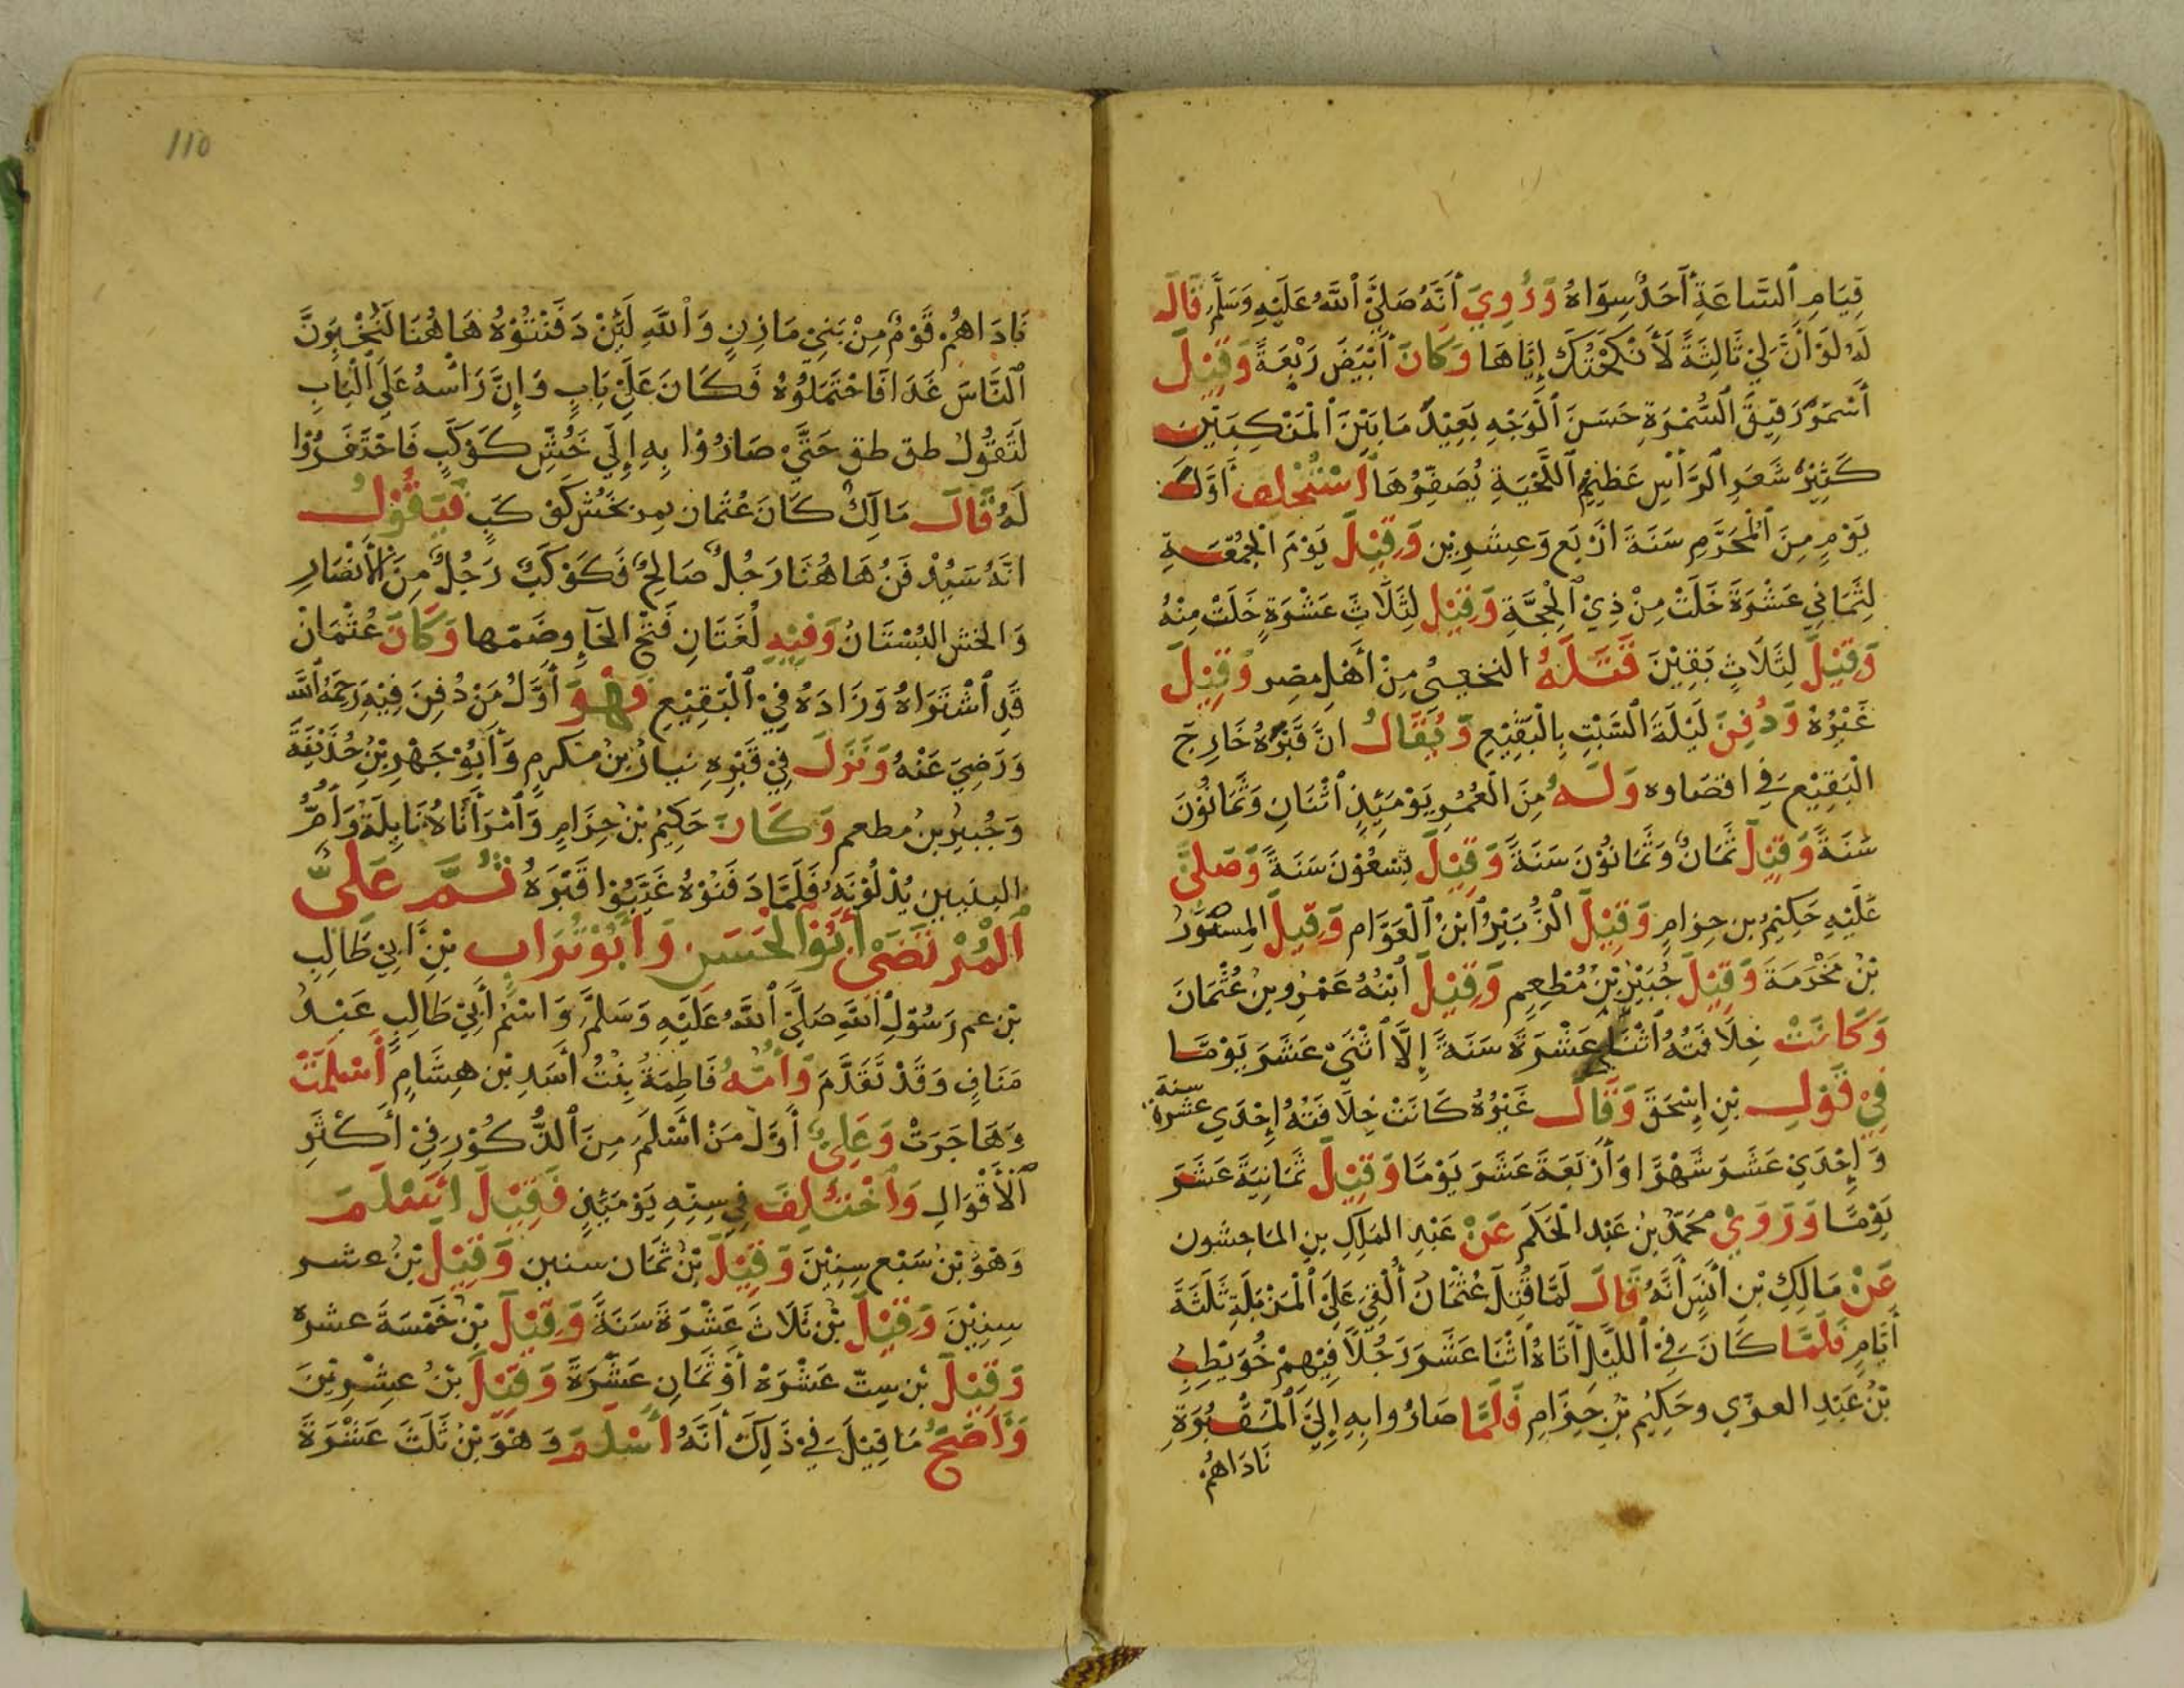 قِيَامِ ٱلسَّاعَةِ أَحَدٌ سِوَاهُ وَرُوِيَ أَنَّهُ صَلَّى ٱللَّهُ عَلَيْهِ وَسَلَّمَ قَالَ
لَهُ لَوْ أَنَّ لِيْ ثَالِثَةً لَأَنْكَحْتُكَ إِيَّاهَا وَكَانَ أَبْيَضَ رَبْعَةً وَقِيْلَ
أَسْمَرُ رَقِيقَ ٱلسُّمْرَةِ حَسَنَ ٱلْوَجْهِ بَعِيْدٌ مَا بَيْنَ ٱلْمَنْكِبَيْنِ
كَثِيْرُ شَعَرِ ٱلرَّأْسِ عَظِيْمُ ٱللِّحْيَةِ يُصَفِّرُهَا ٱسْتُخْلِفَ أَوَّلَ
يَوْمٍ مِنَ ٱلْمُحَرَّمِ سَنَةَ أَرْبَعٍ وَعِشْرِيْنَ وَقِيْلَ يَوْمَ الْجُمُعَةِ
لِثَمَانِي عَشْرَةَ خَلَتْ مِنْ ذِيْ ٱلْحِجَّةِ وَقِيْلَ لِثَلَاثَ عَشْرَةٍ خَلَتْ مِنْهُ
وَقِيْلَ لِثَلَاثٍ بَقِيْنَ قَتَلَهُ النخعي مِنْ أَهْلِ مِصْر وَقِيْلَ
غَيْرُهُ وَدُفِنَ لَيْلَةَ ٱلسَّبْتِ بِالْبَقِيْعِ وَيُقَالُ انَّ قَبْرَهُ خَارِجَ
الْبَقِيْعِ فِي اقصاوه وَلَهُ مِنَ ٱلْعُمْرِ يَوْمَئِذٍ ٱثْنَانِ وَثَمَانُوْنَ
سَنَةً وَقِيْلَ ثَمَانٌ وَثَمَانُوْنَ سَنَةً وَقِيْلَ تِسْعُوْنَ سَنَةً وَصَلَّى
عَلَيْهِ حَكِيْمُ بن حِزَامٍ وَقِيْلَ الْزُّبَيْرُ ٱبْنُ ٱلْعَوَّام وَقِيلَ المِسْوَرُ
بْنُ مَخْرَمَةَ وَقِيْلَ جُبَيْرُ بْنُ مُطْعِمٍ وَقِيْلَ ٱبْنُهُ عَمْرُو بْنُ عُثْمَانَ
وَكَانَتْ خِلَافَتُهُ ٱثْنَا عَشْرَةَ سَنَةً إِلَّا ٱثْنَى عَشَرَ يَوْمًا
فِيْ قَوْلِ بْنِ إِسْحَقَ وَقَالَ غَيْرُهُ كَانَتْ خِلَافَتُهُ إِحْدَي عشرة سنة
وَإِحْدَيْ عَشَرَ شَهْرًا وَأَرْبَعَةَ عَشَرَ يَوْمًا وَقِيْلَ ثَمَانِيَةَ عَشَرَ
يَوْمًا وَرَوَيْ محمّدُ بْنُ عَبْدِ ٱلْحَكَمِ عَنْ عَبْدِ المَلِكِ بنِ الماجشون
عَنْ مَالِكِ بْنِ أَنَسٍ أَنَّهُ قَالَ لَمَّا قُتِلَ عُثْمَانُ أُلْقِيَ عَلَى ٱلْمَزْبَلَةِ ثَلَثَةَ
أَيَّامٍ فَلَمَّا كَانَ فِيْ ٱللَّيْلِ أَتَاهُ ٱثْنَا عَشَرَ رَجُلًا فِيْهِمْ حُوَيْطِبُ
بْنُ عَبْدِ العزي وحَكِيْم بْنِ حِزَامٍ فَلَمَّا صَارُوا بِهِ إِلَى ٱلْمَقْبُرَةِ
نَادَاهُمْ
110
نَادَاهُمْ قَوْمٌ مِنْ بَنِيْ مَازِنٍ وَٱللَّهِ لَئِنْ دَفَنْتُوْهُ هَاهُنَا لَنُخْبِرَنَّ
ٱلنَّاسَ غَدًا فَاحْتَمَلُوْهُ فَكَانَ عَلَى بَابٍ وَإِنَّ رَاسَهُ عَلَى ٱلْبَابِ
لَتَقُوْلُ طق طق حَتَّى صَارُوْا بِهِ إِلَي حُشِّ كَوْكَبٍ فَاحْتَفَرُوْا
لَهُ قَالَ مَالِكٌ كَانَ عُثْمَان يمر بحُشِّ كَوْكَبٍ فَيَقُوْلُ
انَّهُ سَيُدْفَنُ هَاهُنَا رَجُلٌ صَالِحٌ فَكَوْكَبٌ رَجُلٌ مِنَ ٱلْأَنْصَارِ
وَالحُش البُسْتَانُ وَفِيْهِ لُغَتَانِ فَتْحُ الحَآءِ وضَمّها وَكَانَ عُثْمَانْ
قَدِ ٱشْتَرَاهُ وَزَادَهُ فِيْ ٱلْبَقِيْعِ فَهُوَ أَوَّلُ مَنْ دُفِنَ فِيْهِ رَحِمَهُ ٱللَّه
وَرَضِيَ عَنْهُ وَنَزَلَ فِيْ قَبْرِهِ نيارُ بْنُ مكرمٍ وَأَبُوْ جَهْمِ بْنُ حُذَيْفَةَ
وَجُبيرُ بنُ مطعم وَكَانَ حَكِيْمُ بْنُ حِزَامٍ وَٱمْرَأَتَاهُ نَايِلَةُ وَأُمُّ
البنيين يُدْلُوْنَهُ فَلَمَّا دَفَنُوْهُ غَيَّبُوْا قَبْرَهُ ثُمَّ عَلَيُّ
ٱلْمُرْتَضَى أَبُوْ ٱلْحَسَنِ وَأَبُوْ تُرَابٍ بْنِ أَبِيْ طَالِبِ
بْنِ عم رَسُوْلِ ٱللَّهِ صَلَّى ٱللَّهُ عَلَيْهِ وَسَلَّمَ وَاسْمُ أَبِيْ طَالِبٍ عَبْدُ
مَنَافٍ وَقَدْ تَقَدَّمَ وَأُمُّهُ فَاطِمَةُ بِنْتُ أَسَدِ بْنِ هِشَامٍ أَسْلَمَتْ
وَهَاجَرَتْ وَعَلِيٌّ أَوَّلُ مَنْ أَسْلَمَ مِنَ ٱلذُّكُوْرِ فِيْ أَكْثَرِ
ٱلْأَقْوَالِ وَٱخْتُلِفَ فِي سِنِّهِ يَوْمَئِذٍ فَقِيْلَ أَسْلَمَ
وَهُوَ بْنُ سَبْع سِنِيْنَ وَقِيْلَ بْنُ ثَمَان سنين وَقِيْلَ بْنُ عشر
سِنِيْنَ وَقِيْلَ بْنُ ثَلَاثَ عَشْرَةَ سَنَةً وَقِيْلَ بْنُ خَمْسَةَ عشره
وَقِيْلَ بْنُ سِتّ عَشْرَة أَوْ ثَمَانِ عَشْرَةَ وَقِيْلَ بْنُ عِشْرِيْنَ
وَأَصَحُّ مَا قِيْلَ فِيْ ذَلِكَ أَنَّهُ أَسْلَمَ وَهُوَ بْنُ ثَلَثَ عَشْرَةَ